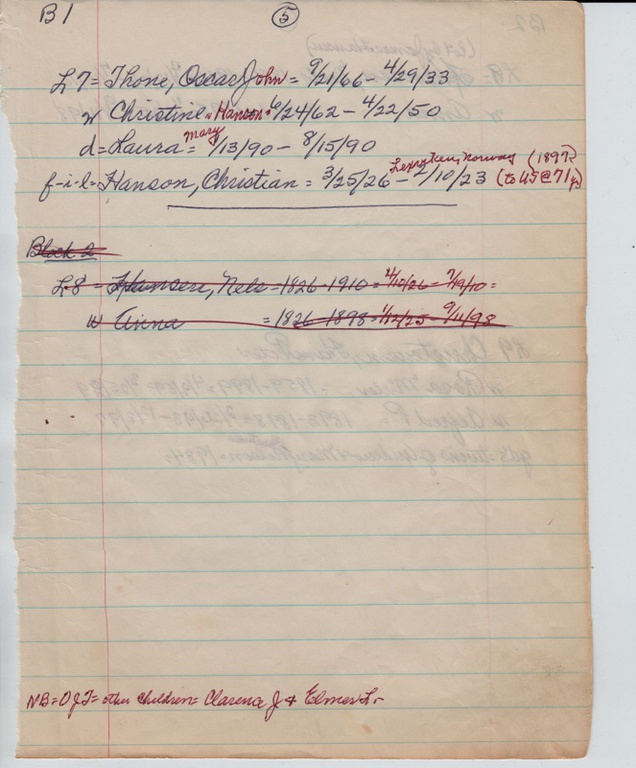 B1 5
L7 = Thone, Oscar John = 9/21/66 - 4/29/33
w Christine "Hanson" 6/24/62 - 4/22/50
d = Laura Mary = 1/13/90 - 8/15/90
f-i-l = Hanson, Christian = 3/25/26 - 2/10/23 Norway (1897) (to US @ 71 yrs
Block 2
L8 = Hansen, Nels = 1826-1910 = 4/10/26 = 7/19/10 =
w Anna = 1826-1898 = 1/12/25 9/11/98
NB = OJT = other children = Clarence J + Elmer L-